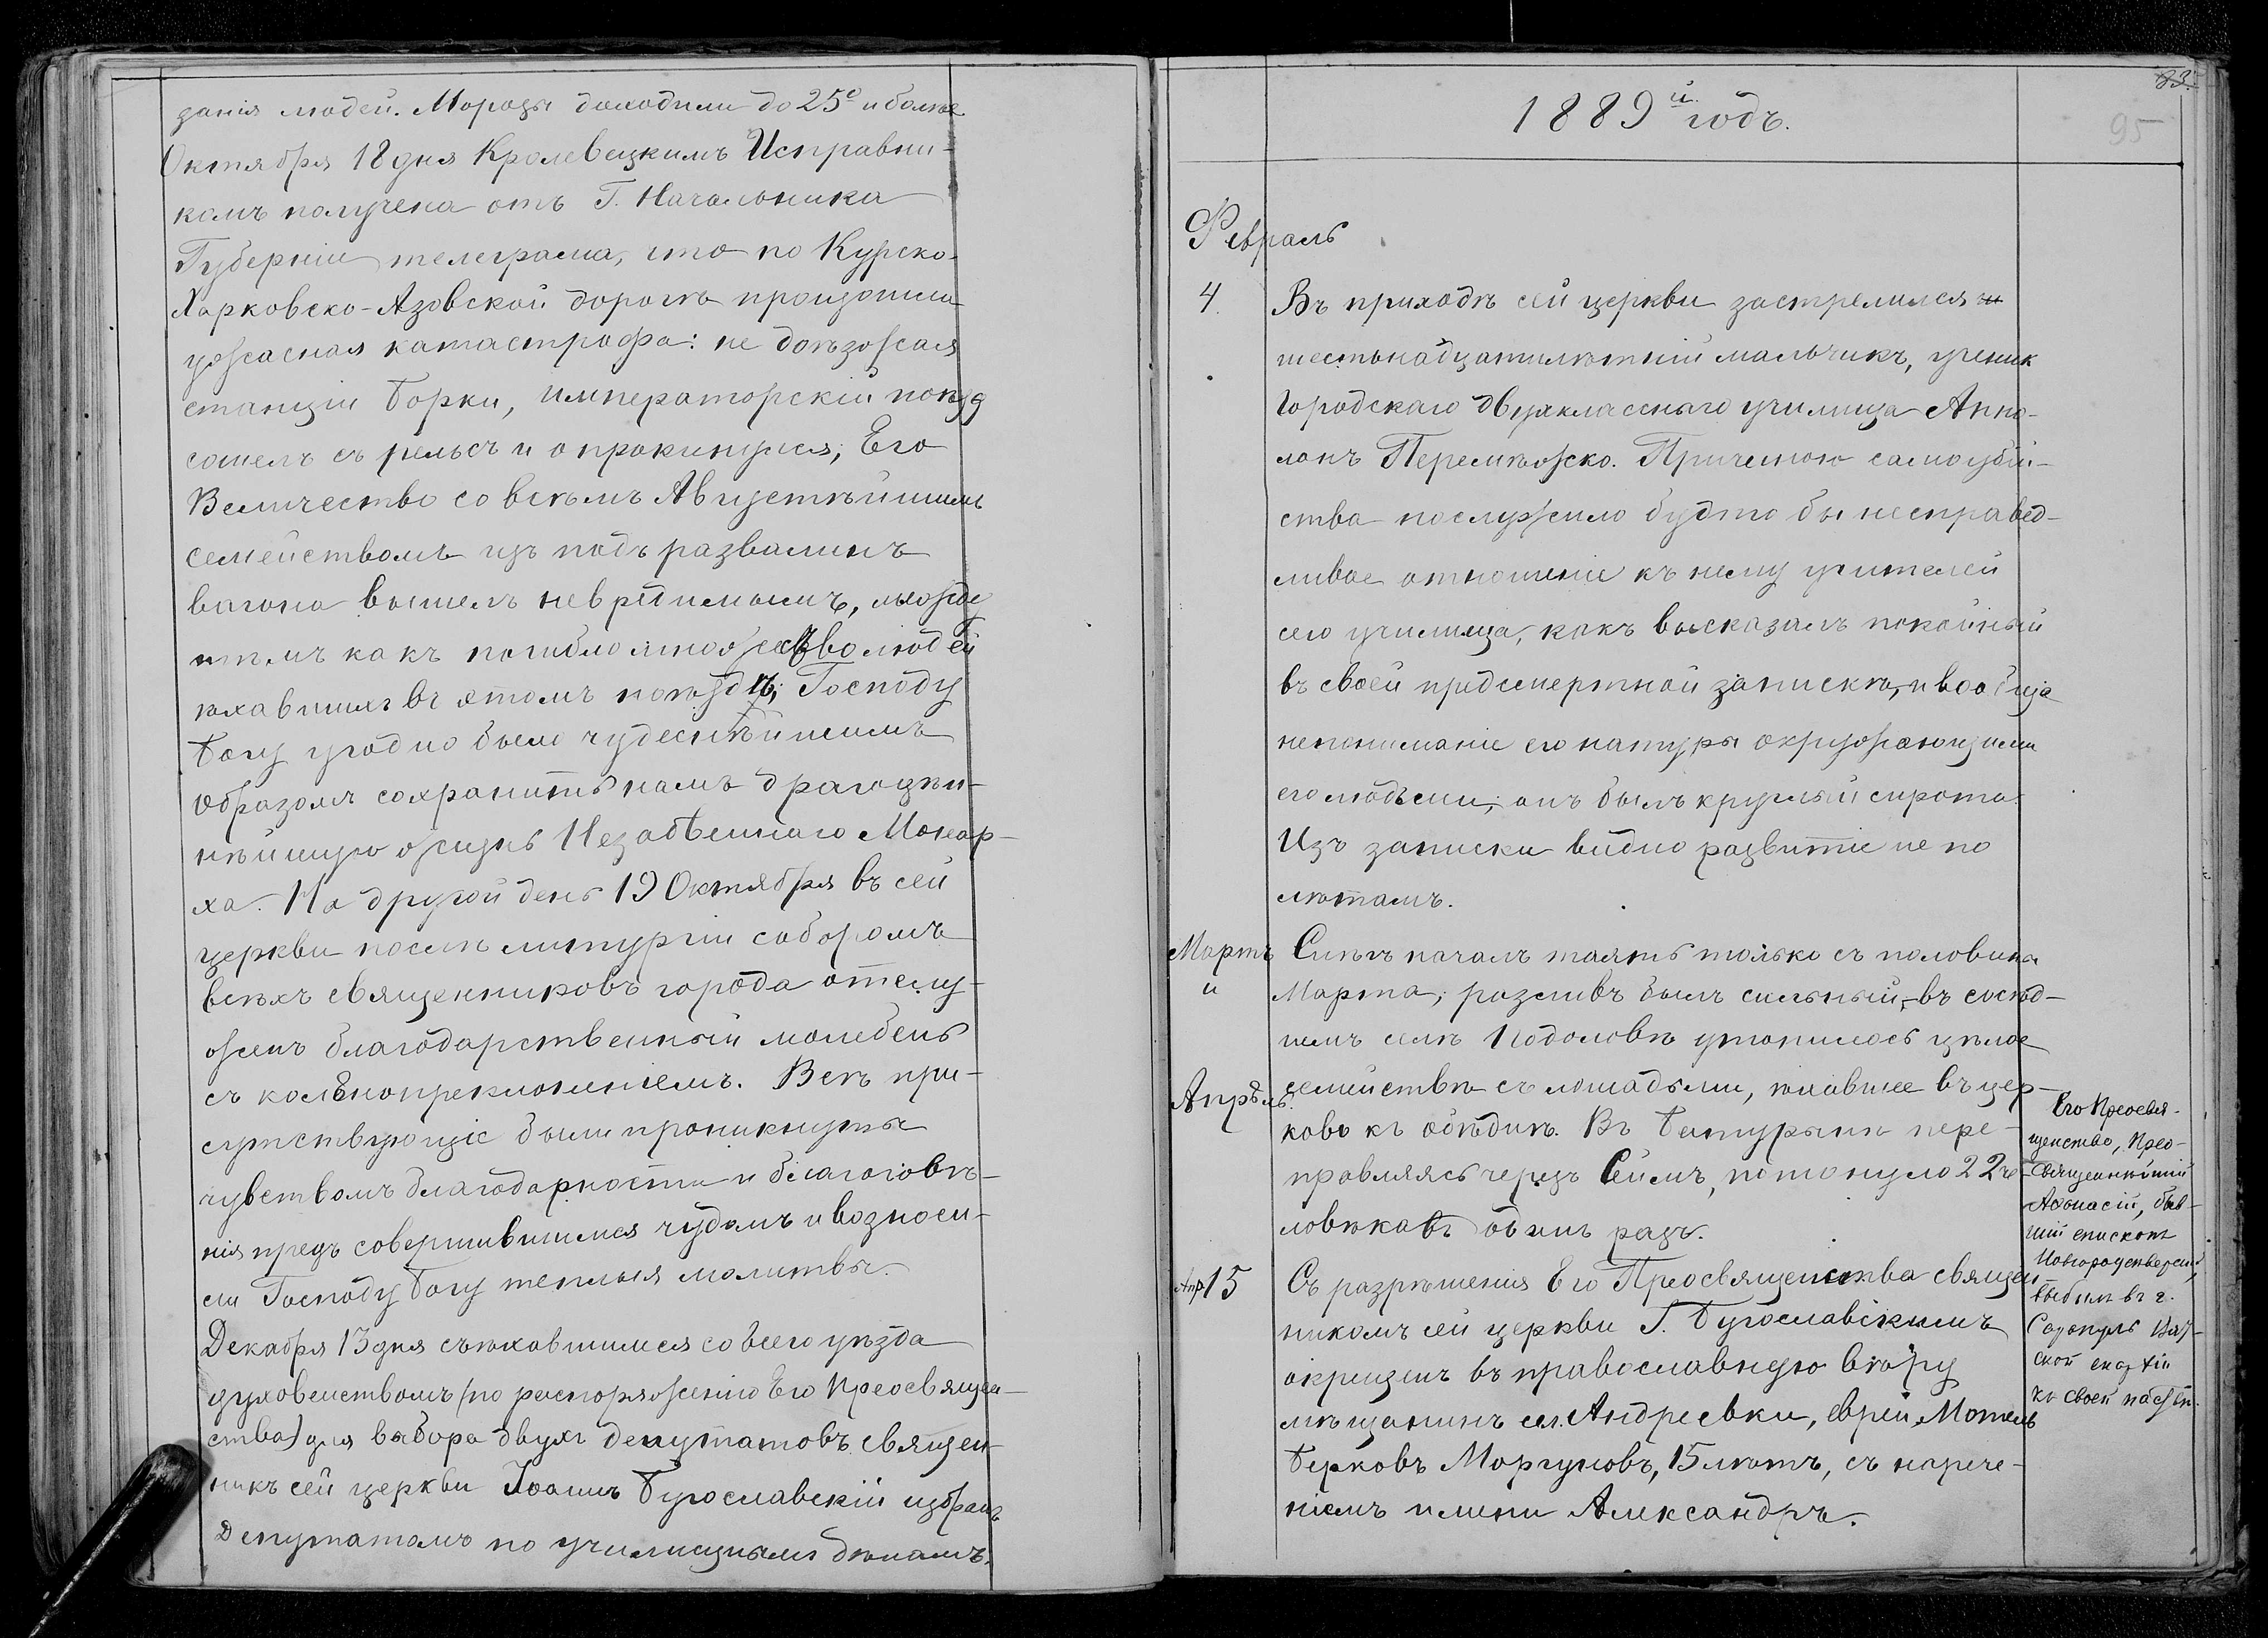 занія людей. Морозы доходили до 25° и болѣе
Октября 18 дня Кролевецкимъ Исправни-
комъ получена отъ Г. Начальника
Губерніи телеграма, что по Курско-
Харковско-Азовской дорогѣ произошла
ужасная катастрофа: не доѣзожая
станціи Борки, императорскій поѣзд
сошелъ съ рельсъ и опрокинулся; Его
Величество со всѣмъ Августѣйшимъ
семействомъ изъ подъ развалинъ
вагона вышелъ невредимымъ, между
тѣмъ какъ погибло множество людей
ѣхавшихъ въ этомъ поѣздѣ; Господу
Богу угодно было чудеснѣйшимъ
образомъ сохранить намъ драгоцѣн-
нѣйшую жизнь Незабвеннаго Монар-
ха. На другой день 19 Октября въ сей
церкви послѣ литургіи соборомъ
всѣхъ священниковъ города отслу-
женъ благодарственный молебенъ
съ колѣнопреклоненіемъ. Всѣ при-
сутствующіе были проникнуты
чувствомъ благодарности и благоговѣ-
нія предъ совершившимся чудомъ и возноси-
ли Господу Богу теплыя молитвы.
Декабря 13 дня съѣхавшимся со всего уѣзда
духовенствомъ (по распоряженію Его Преосвящен-
ства) для выбора двухъ депутатовъ священ-
никъ сей церкви Іоаннъ Бугославскій избранъ
Депутатомъ по училищнымъ дѣламъ.
33.
95
1889й годъ.
Февраль
4. Въ приходѣ сей церкви застрелился
шестьнадцатилѣтній мальчикъ, ученик
Городскаго двухкласснаго училища Аппо-
лонъ Перемѣжко. Причиною самоубій-
ства послужило будто бы несправед-
ливое отношеніе къ нему учителей
сего училища, какъ высказалъ покойный
въ своей предсмертной запискѣ, и вообще
непониманіе его натуры окружающими
его людьми; онъ былъ круглый сирота.
Изъ записки видно развитіе не по
лѣтамъ.
Мартъ Снѣгъ началъ таять только съ половины
и Марта; разливъ былъ сильный, въ сосѣд-
немъ селѣ Подоловѣ утопилось цѣлое
Апрѣль. семейство съ лошадьми, ѣхавшее въ цер-
ковь къ обѣднѣ. Въ Батурынѣ пере-
правляясь черезъ Сеймъ, потонуло 22 че-
ловѣка въ одинъ разъ.
Апр 15 Съ разрѣшенія Его Преосвященства священ
никомъ сей церкви І. Бугославскимъ
окрещенъ въ православную вѣру
мѣщанинъ сел. Андреевки, еврей, Мотель
Берковъ Моргуновъ, 15 лѣтъ, съ нарече-
ніемъ имени Александръ.
Его Преосвя-
щенство, Прео-
священнѣйшій
Афонасій, быв-
шій епископъ
Новгородсѣверскій,
выбылъ въ г.
Сарапулъ Вят-
ской епархіи
къ своей паствѣ.